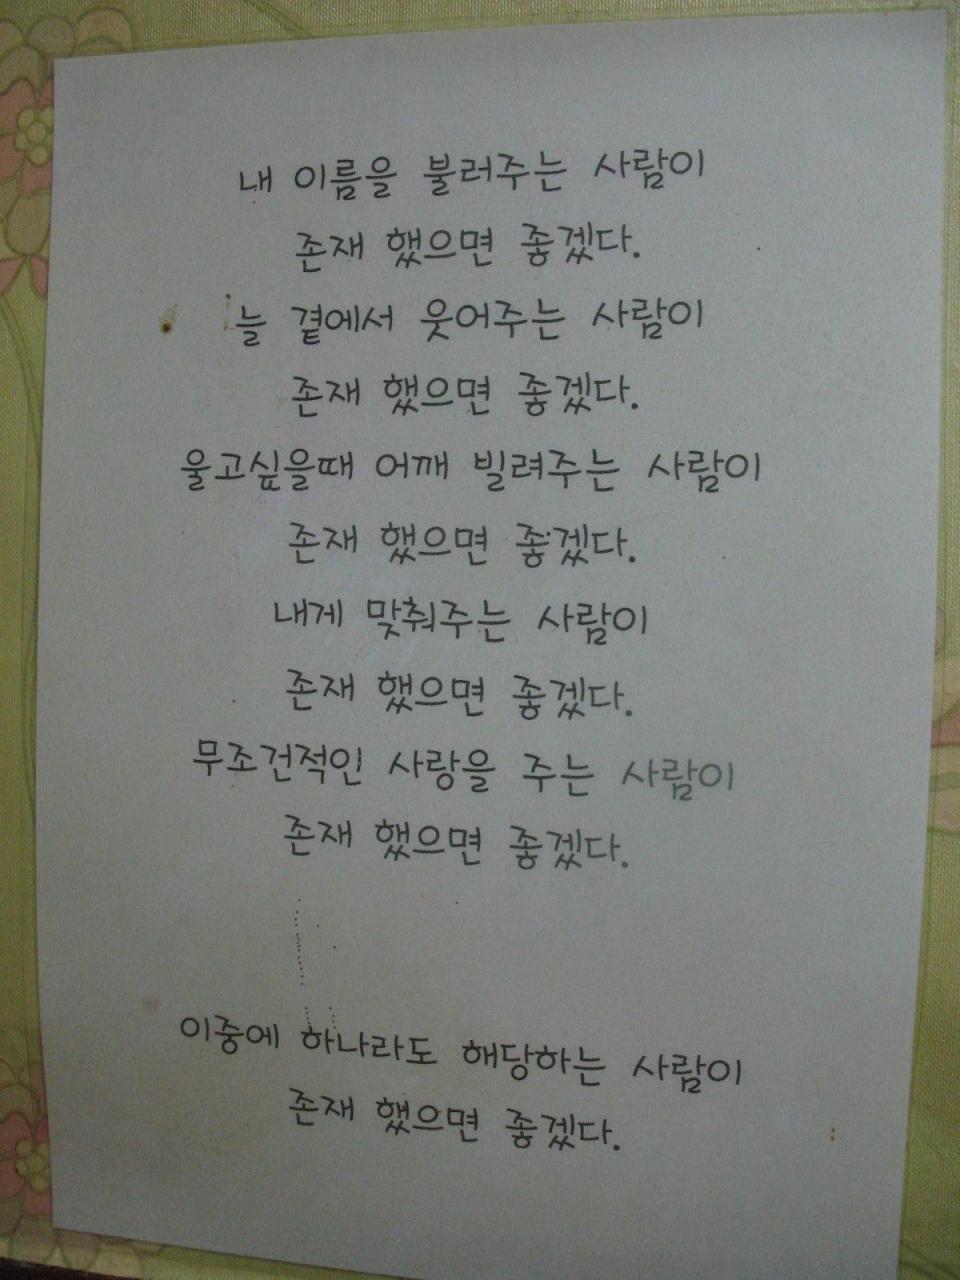 내 이름을 불러주는 사람이
존재 했으면 좋겠다.
늘 곁에서 웃어주는 사람이
존재 했으면 좋겠다.
울고싶을때 어깨 빌려주는 사람이
존재 했으면 좋겠다.
내게 맞춰주는 사람이
존재 했으면 좋겠다.
무조건적인 사랑을 주는 사람이
존재 했으면 좋겠다.
이중에 하나라도 해당하는 사람이
존재 했으면 좋겠다.